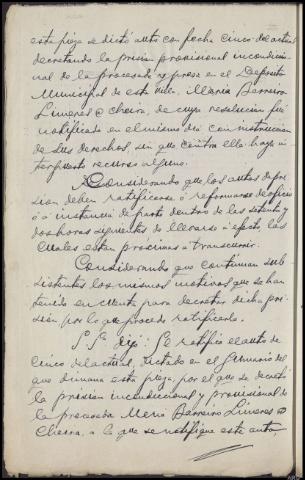 esta pieza se dictó auto con fecha cinco del actual
decretando la prision provisional incondicio-
nal de la procesada y presa en el Deposito
Municipal de esta villa, Maria Barreiro
Limeres @ Cheira, de cuya resolucion fué
notificada en el mismo dia con instruccion
de sus derechos, sin que contra ella haya in-
terpuesto recurso alguno.
Considerando que los autos de pri-
sion deben ratificarse o reformarse de oficio
ó a instancia de parte dentro de las setenta y
dos horas siguientes de llevarse a efecto, las
cuales estan proximas a transcurrir.
Considerando que continuan sub-
sistentes los mismos motivos que se han
tenido en cuenta para decretar dicha pri-
sion por lo que procede ratificarla.
S.Sª dijo: Se ratifica el auto de
cinco del actual, dictado en el sumario del
que dimana esta pieza, por el que se decretó
la prision incondicional y provisional de
la procesada Maria Barreiro Limeres @
Cheira, a la que se notifique este auto